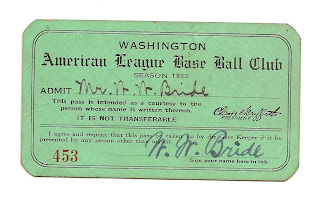 WASHINGTON
American League Base Ball Club
SEASON 1933
ADMIT Mr. W. W. Bride
This pass is intended as a courtesy to the
person whose name is written thereon.
IT IS NOT TRANSFERABLE
PRESIDENT
I agree and request that this pass be taken up by the Gate Keeper if it be
presented by any person other than myself.
W. W. Bride
453
Sign your name here in ink.